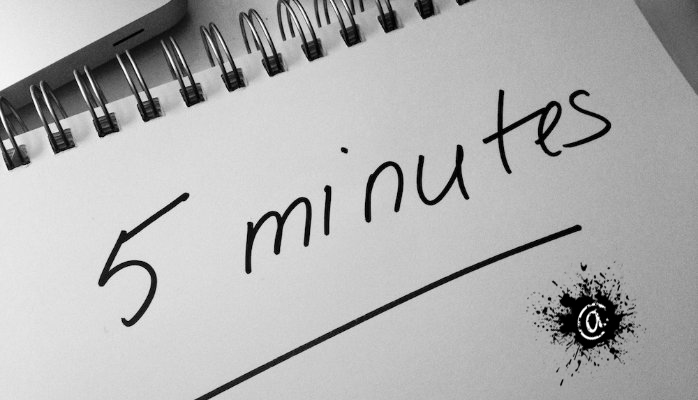 5 minutes
@